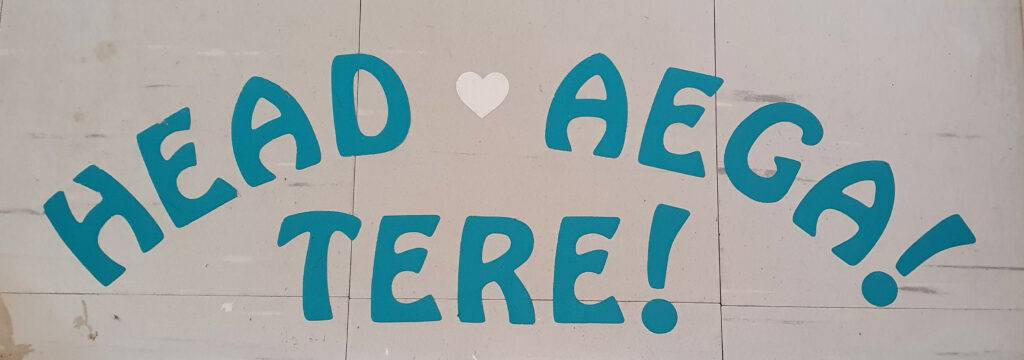 HEAD AEGA!
TERE!